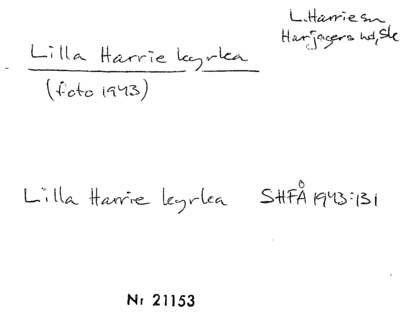 L. Harrie sn
Harjagers hd, Sk
Lilla Harrie kyrka
(foto 1943)
Lilla Harrie kyrka SHFÅ 1943:131
Nr 21153